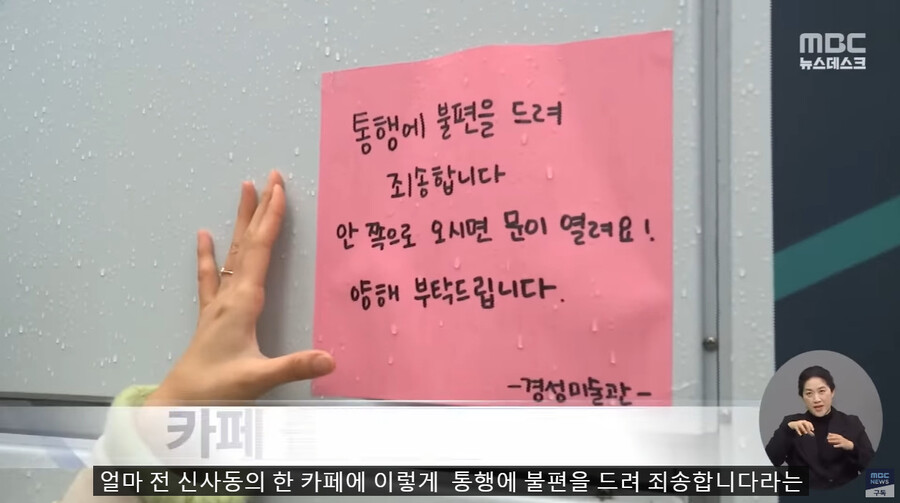 MBC
뉴스데스크
통행에 불편을 드려
죄송합니다
안 쪽으로 오시면 문이 열려요!
양해 부탁드립니다.
-경성미술관-
카페
얼마 전 신사동의 한 카페에 이렇게 통행에 불편을 드려 죄송합니다라는
MBC
NEWS
구독